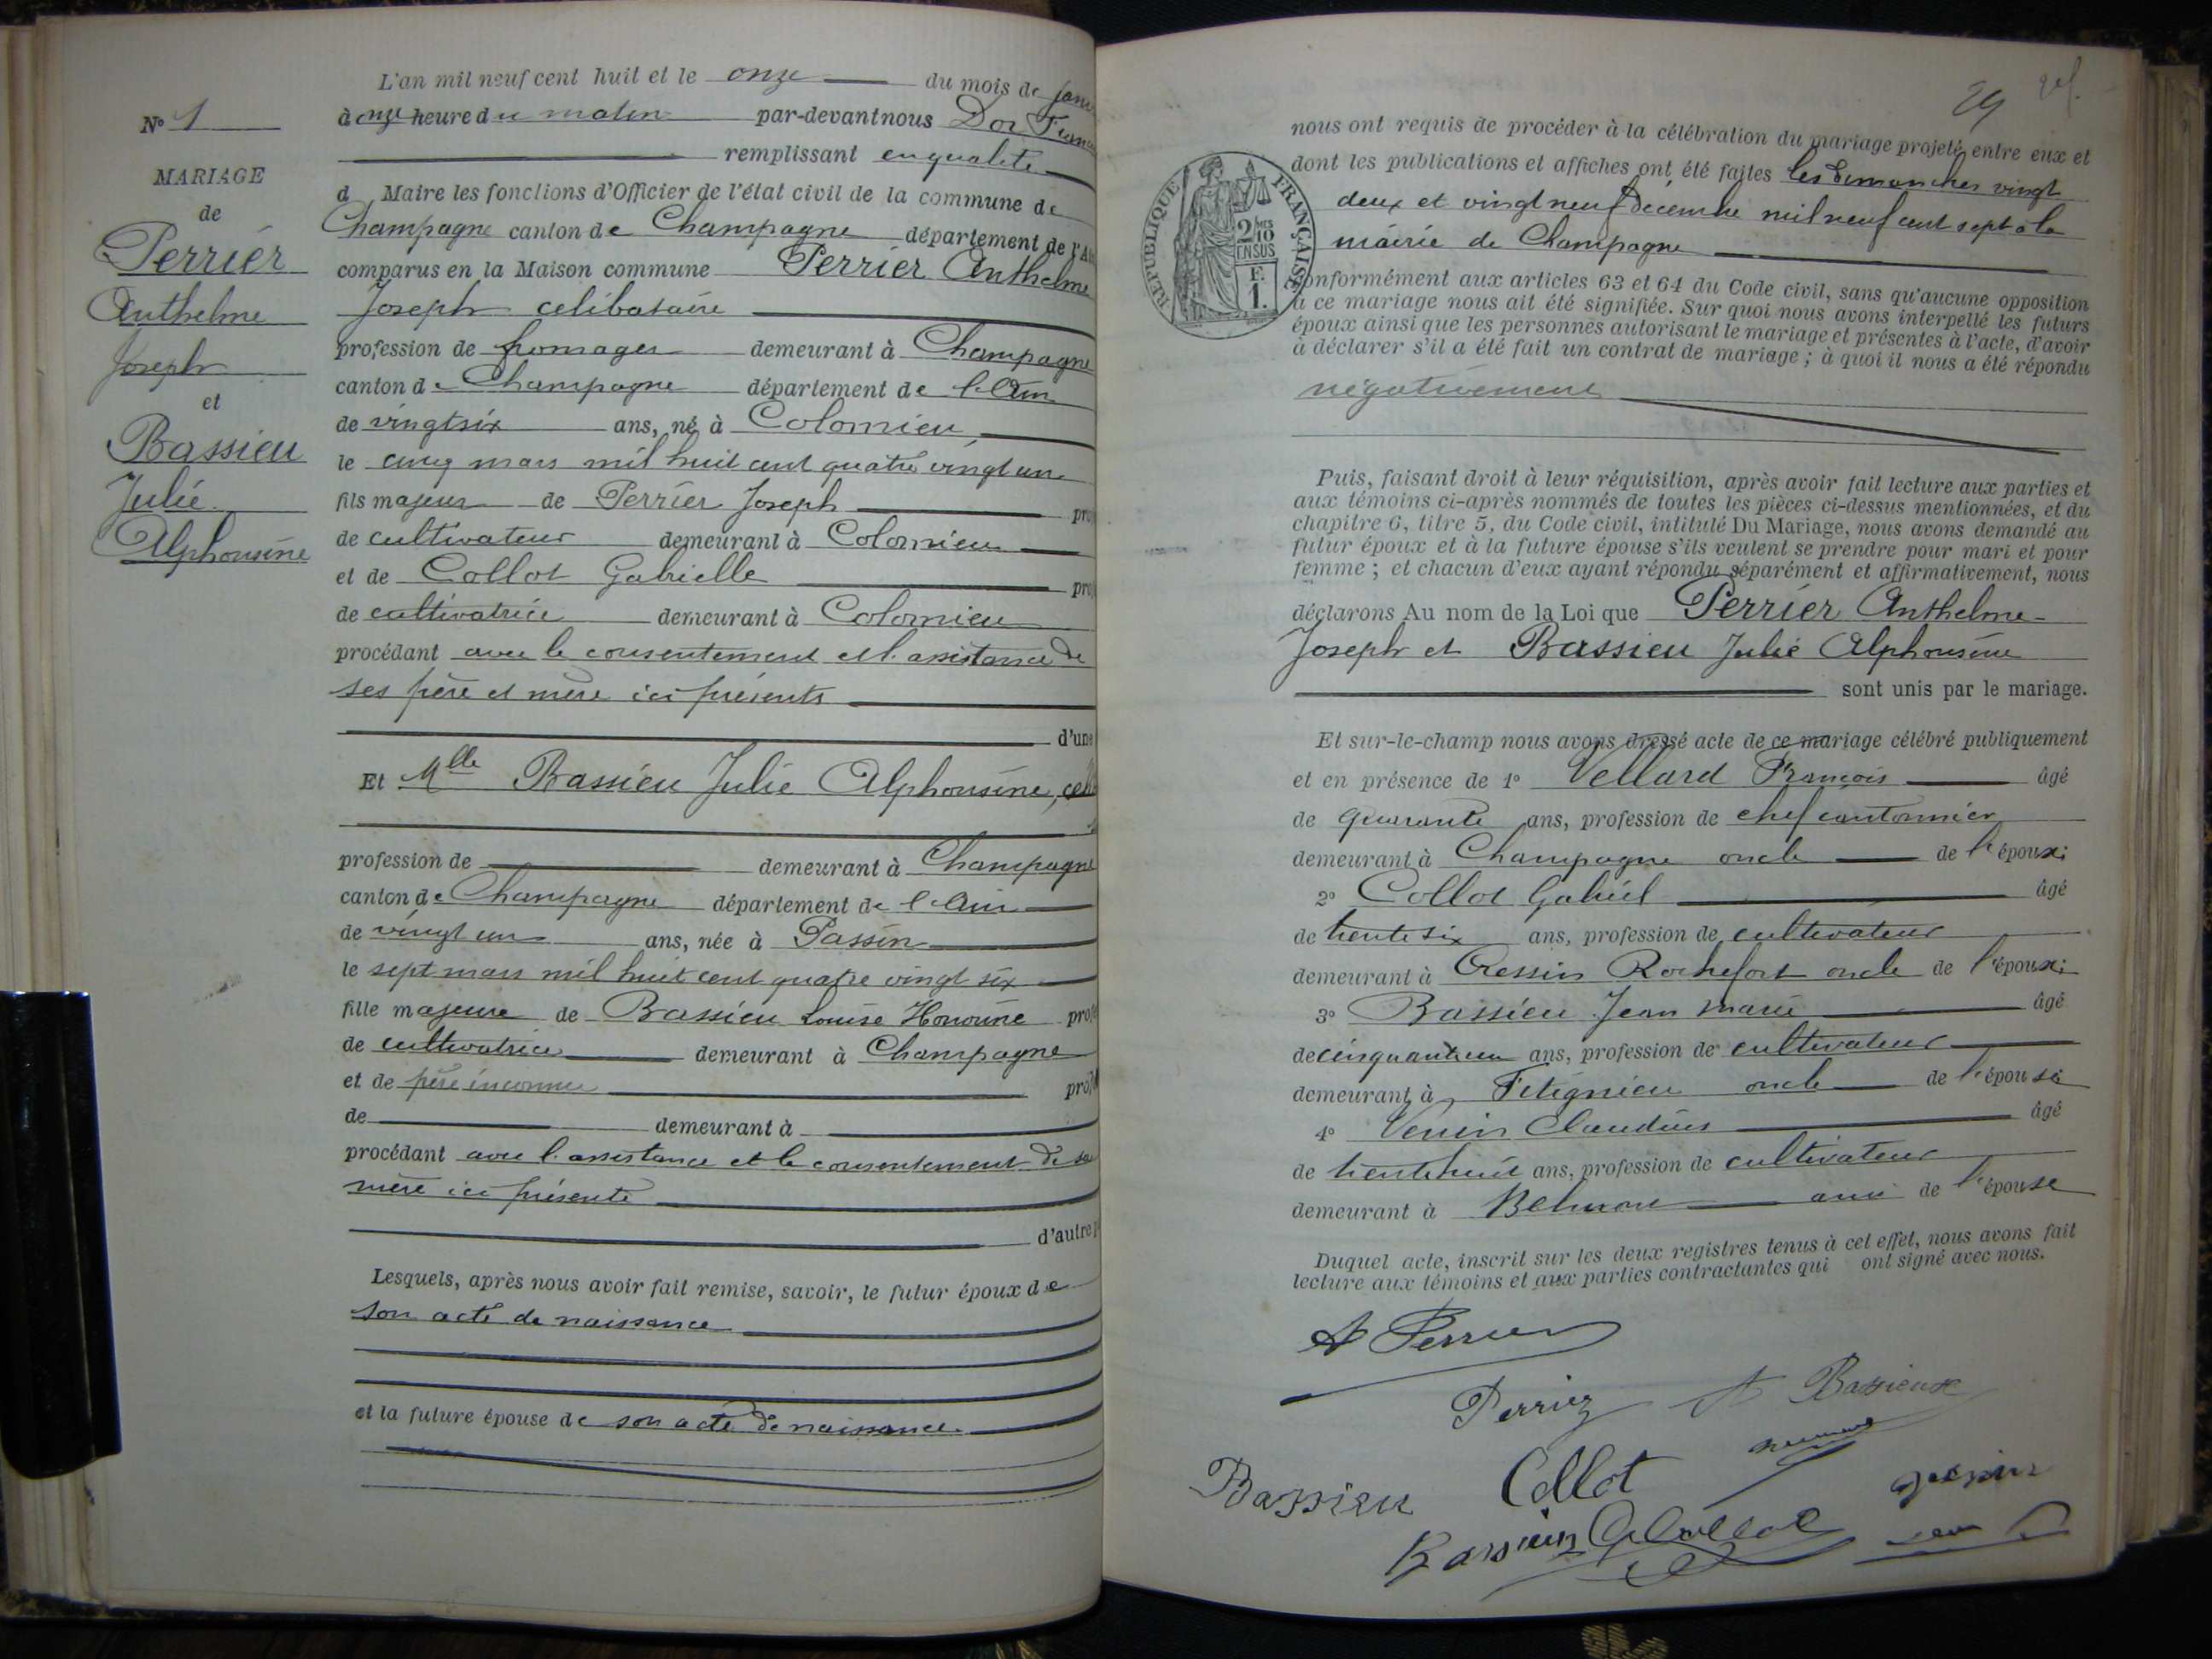 L'an mil neuf cent huit et le onze du mois de janv
N° 1
à onze heure du matin par-devant nous Dor Franc
remplissant en qualité
MARIAGE
d Maire les fonctions d'Officier de l'état civil de la commune de
de
Champagne canton de Champagne département de l'Ai
Perrier
comparus en la Maison commune Perrier Anthelme
Anthelme
Joseph celibataire
Joseph
profession de fromager demeurant à Champagne
canton de Champagne département de l'Ain
et
de vingt six ans, né à Colomieu
Bassieu
le cinq mars mil huit cent quatre vingt un
Julie
fils majeur de Perrier Joseph prof
Alphonsine
de cultivateur demeurant à Colomieu
et de Collot Gabrielle prof
de cultivatrice demeurant à Colomieu
procédant avec le consentement et l'assistance de
ses père et mère ici présents
d'une
Et Mlle Bassieu Julie Alphonsine, celi
profession de demeurant à Champagne
canton de Champagne département de l'Ain
de vingt un ans, née à Passin
le sept mars mil huit cent quatre vingt six
fille majeure de Bassieu Louise Honorine prof
de cultivatrice demeurant à Champagne
et de père inconnu prof
de demeurant à
procédant avec l'assistance et le consentement de sa
mère ici présente
d'autre p
Lesquels, après nous avoir fait remise, savoir, le futur époux de
son acte de naissance
et la future épouse de son acte de naissance
29
nous ont requis de procéder à la célébration du mariage projeté entre eux et
dont les publications et affiches ont été faites les dimanches vingt
deux et vingt neuf Décembre mil neuf cent sept à la
mairie de Champagne
RÉPUBLIQUE FRANÇAISE
2/10 mes
EN SUS
F.
1.
conformément aux articles 63 et 64 du Code civil, sans qu'aucune opposition
à ce mariage nous ait été signifiée. Sur quoi nous avons interpellé les futurs
époux ainsi que les personnes autorisant le mariage et présentes à l'acte, d'avoir
à déclarer s'il a été fait un contrat de mariage ; à quoi il nous a été répondu
négativement
Puis, faisant droit à leur réquisition, après avoir fait lecture aux parties et
aux témoins ci-après nommés de toutes les pièces ci-dessus mentionnées, et du
chapitre 6, titre 5, du Code civil, intitulé Du Mariage, nous avons demandé au
futur époux et à la future épouse s'ils veulent se prendre pour mari et pour
femme ; et chacun d'eux ayant répondu séparément et affirmativement, nous
déclarons Au nom de la Loi que Perrier Anthelme
Joseph et Bassieu Julie Alphonsine
sont unis par le mariage.
Et sur-le-champ nous avons dressé acte de ce mariage célébré publiquement
et en présence de 1° Vellard François âgé
de quarante ans, profession de chef cantonnier
demeurant à Champagne oncle de l'époux;
2° Collot Gabriel âgé
de trente six ans, profession de cultivateur
demeurant à Cressin Rochefort oncle de l'époux;
3° Bassieu Jean Marie âgé
de cinquante un ans, profession de cultivateur
demeurant à Fitignieu oncle de l'épouse
4° Venin Claudius âgé
de trente huit ans, profession de cultivateur
demeurant à Belmont ami de l'épouse
Duquel acte, inscrit sur les deux registres tenus à cet effet, nous avons fait
lecture aux témoins et aux parties contractantes qui ont signé avec nous.
A Perrier
Perriez A Bassieux
Bassieu Collot
Bassieux G Collot